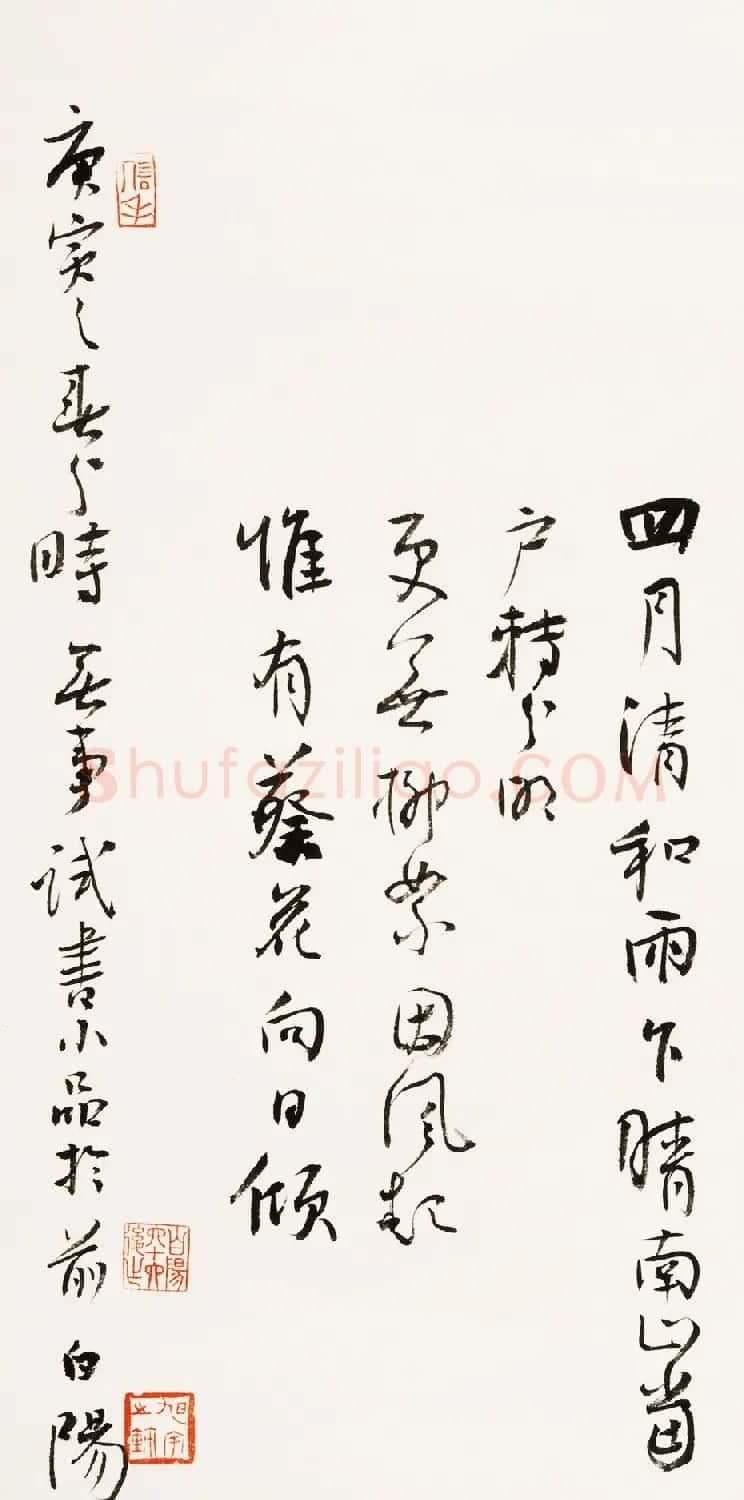 四月清和雨乍晴南山當
户轉分明
更無柳絮因風起
惟有葵花向日傾
庚寅之春分時無事試書小品於前白陽
信手
旭宇
Shufaziliao.COM